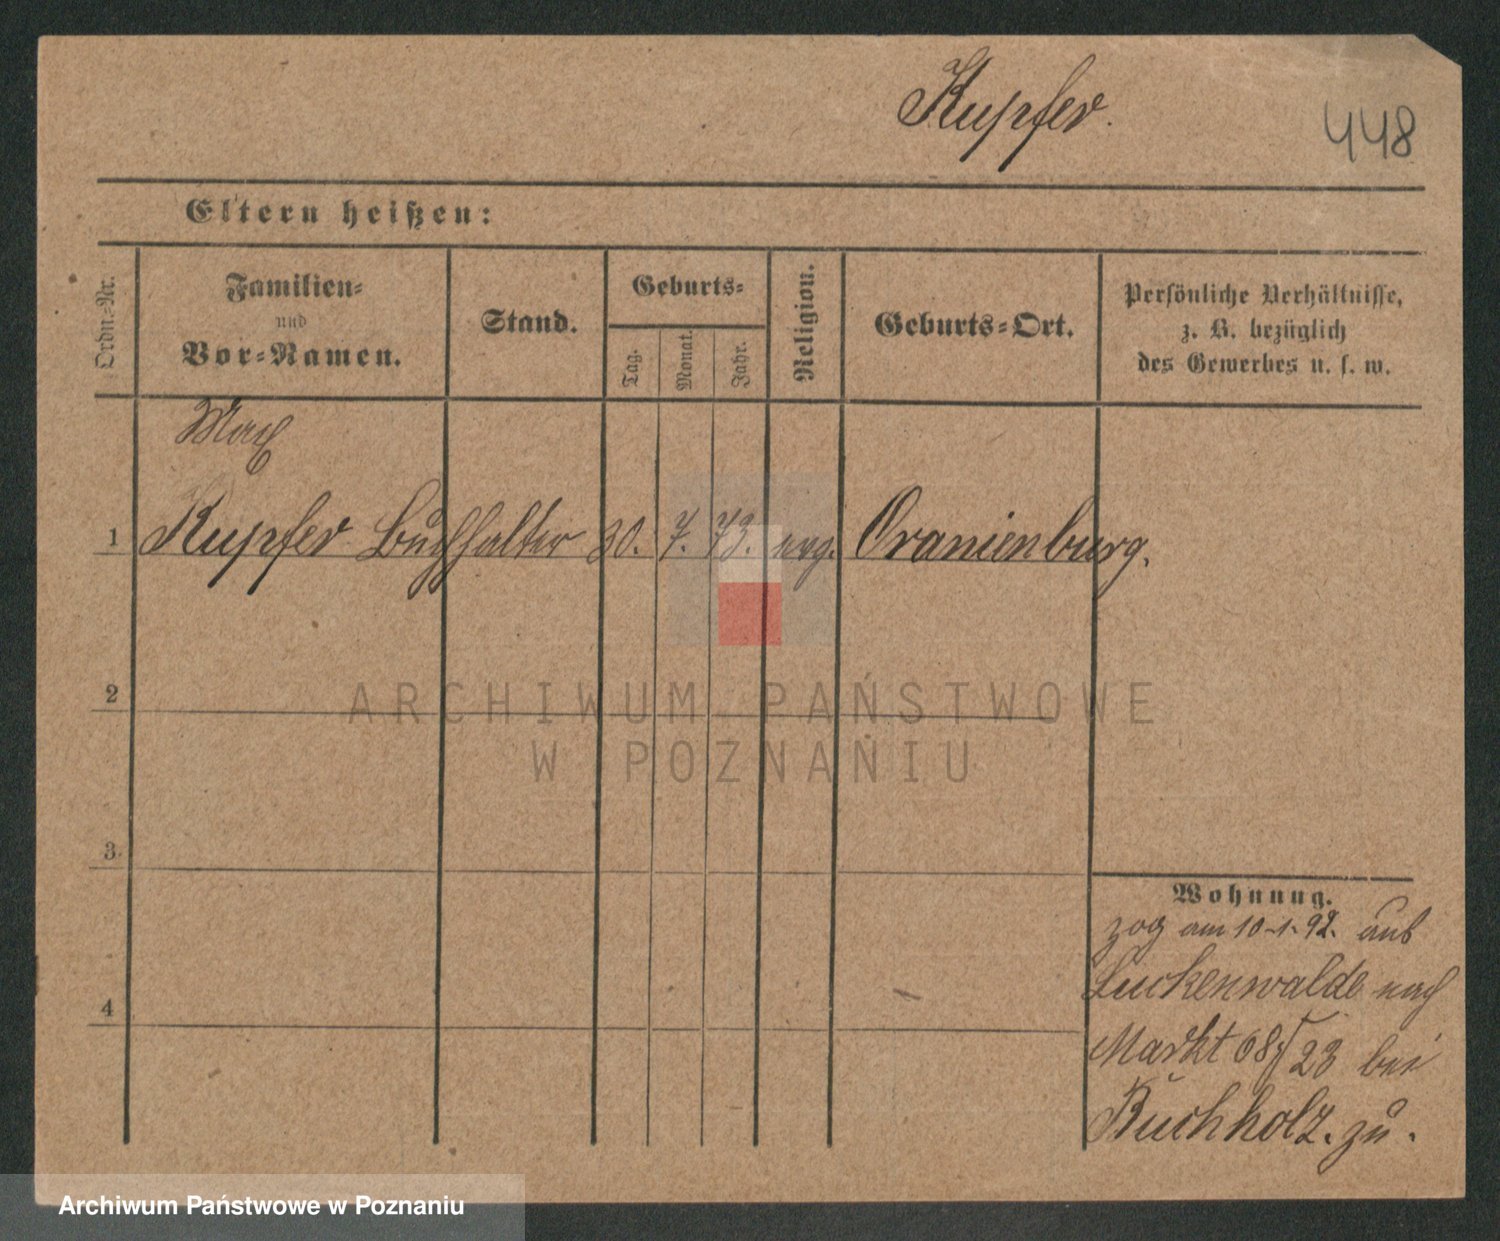 Kupfer.
448
Eltern heißen:
Ordn.-Nr.
Familien-
und
Vor-Namen.
Stand.
Geburts-
Tag.
Monat.
Jahr.
Religion.
Geburts-Ort.
Persönliche Verhältnisse,
z. B. bezüglich
des Gewerbes u. s. w.
Max
1 Kupfer Buchhalter 20. 7. 73. evg. Oranienburg.
2
ARCHIWUM PAŃSTWOWE
W POZNANIU
3
Wohnung.
zog am 10-1-92. aus
Luckenwalde nach
4
Markt 68/23 bei
Buchholz. zu.
Archiwum Państwowe w Poznaniu